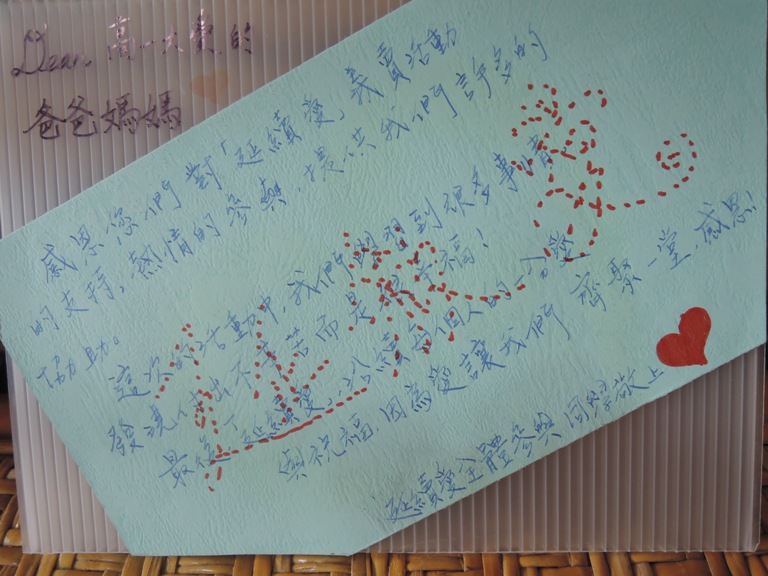 Dear, 高一大愛的
爸爸媽媽
感恩您們對「延續愛」義賣活動
的支持，熱情的參與，提供我們許多的
協助。
這次的活動中，我們學習到很多事情，
發現付出不辛苦而是很幸福！
最後「延續愛」，以結每個人的一份愛
與祝福，因為愛讓我們齊聚一堂，感恩！
延續愛全體參與同學敬上